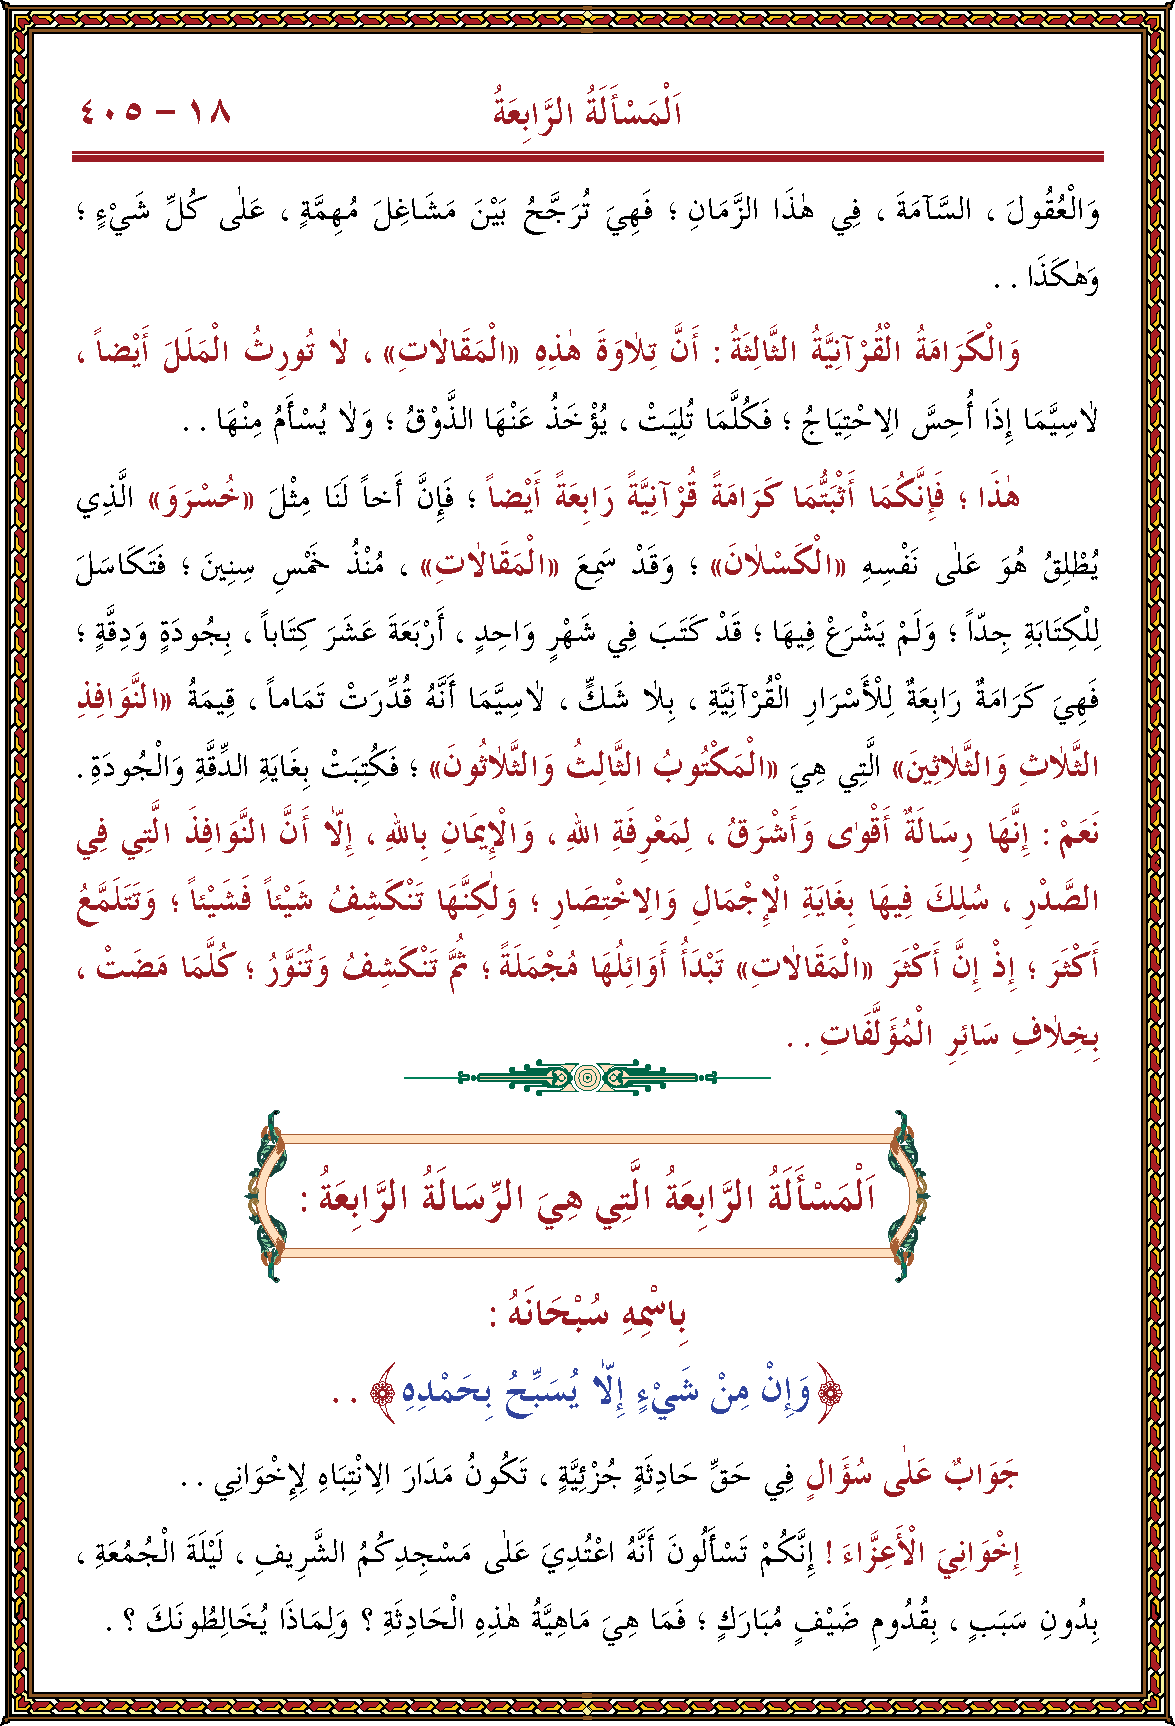 اَلْمَسْأَلَةُ الرَّابِعَةُ ١٨ – ٤٠٥
وَالْعُقُولَ ، السَّآمَةَ ، فِي هٰذَا الزَّمَانِ ؛ فَهِيَ تُرَجَّحُ بَيْنَ مَشَاغِلَ مُهِمَّةٍ ، عَلٰى كُلِّ شَيْءٍ ؛
وَهٰكَذَا . .
وَالْكَرَامَةُ الْقُرْآنِيَّةُ الثَّالِثَةُ : أَنَّ تِلاٰوَةَ هٰذِهِ «الْمَقَالاٰتِ» ، لاٰ تُورِثُ الْمَلَلَ أَيْضاً ،
لاٰسِيَّمَا إِذَا أُحِسَّ الِاحْتِيَاجُ ؛ فَكُلَّمَا تُلِيَتْ ، يُؤْخَذُ عَنْهَا الذَّوْقُ ؛ وَلاٰ يُسْأَمُ مِنْهَا . .
هٰذَا ؛ فَإِنَّكُمَا أَثْبَتُّمَا كَرَامَةً قُرْآنِيَّةً رَابِعَةً أَيْضاً ؛ فَإِنَّ أَخاً لَنَا مِثْلَ «خُسْرَوَ» الَّذِي
يُطْلِقُ هُوَ عَلٰى نَفْسِهِ «الْكَسْلاٰنَ» ؛ وَقَدْ سَمِعَ «الْمَقَالاٰتِ» ، مُنْذُ خَمْسِ سِنِينَ ؛ فَتَكَاسَلَ
لِلْكِتَابَةِ جِدّاً ؛ وَلَمْ يَشْرَعْ فِيهَا ؛ قَدْ كَتَبَ فِي شَهْرٍ وَاحِدٍ ، أَرْبَعَةَ عَشَرَ كِتَاباً ، بِجُودَةٍ وَدِقَّةٍ ؛
فَهِيَ كَرَامَةٌ رَابِعَةٌ لِلْأَسْرَارِ الْقُرْآنِيَّةِ ، بِلاٰ شَكٍّ ، لاٰسِيَّمَا أَنَّهُ قُدِّرَتْ تَمَاماً ، قِيمَةُ «النَّوَافِذِ
الثَّلاٰثِ وَالثَّلاٰثِينَ» الَّتِي هِيَ «الْمَكْتُوبُ الثَّالِثُ وَالثَّلاٰثُونَ» ؛ فَكُتِبَتْ بِغَايَةِ الدِّقَّةِ وَالْجُودَةِ .
نَعَمْ : إِنَّهَا رِسَالَةٌ أَقْوٰى وَأَشْرَقُ ، لِمَعْرِفَةِ اللهِ ، وَالْإِيمَانِ بِاللهِ ، إِلاّٰ أَنَّ النَّوَافِذَ الَّتِي فِي
الصَّدْرِ ، سُلِكَ فِيهَا بِغَايَةِ الْإِجْمَالِ وَالِاخْتِصَارِ ؛ وَلٰكِنَّهَا تَنْكَشِفُ شَيْئاً فَشَيْئاً ؛ وَتَتَلَمَّعُ
أَكْثَرَ ؛ إِذْ إِنَّ أَكْثَرَ «الْمَقَالاٰتِ» تَبْدَأُ أَوَائِلُهَا مُجْمَلَةً ؛ ثُمَّ تَنْكَشِفُ وَتُنَوَّرُ ؛ كُلَّمَا مَضَتْ ،
بِخِلاٰفِ سَائِرِ الْمُؤَلَّفَاتِ . .
اَلْمَسْأَلَةُ الرَّابِعَةُ الَّتِي هِيَ الرِّسَالَةُ الرَّابِعَةُ :
بِاسْمِهِ سُبْحَانَهُ :
﴿وَإِنْ مِنْ شَيْءٍ إِلاّٰ يُسَبِّحُ بِحَمْدِهِ﴾ . .
جَوَابٌ عَلٰى سُؤَالٍ فِي حَقِّ حَادِثَةٍ جُزْئِيَّةٍ ، تَكُونُ مَدَارَ الِانْتِبَاهِ لِإِخْوَانِي . .
إِخْوَانِيَ الْأَعِزَّاءَ ! إِنَّكُمْ تَسْأَلُونَ أَنَّهُ اعْتُدِيَ عَلٰى مَسْجِدِكُمُ الشَّرِيفِ ، لَيْلَةَ الْجُمُعَةِ ،
بِدُونِ سَبَبٍ ، بِقُدُومِ ضَيْفٍ مُبَارَكٍ ؛ فَمَا هِيَ مَاهِيَّةُ هٰذِهِ الْحَادِثَةِ ؟ وَلِمَاذَا يُخَالِطُونَكَ ؟ .